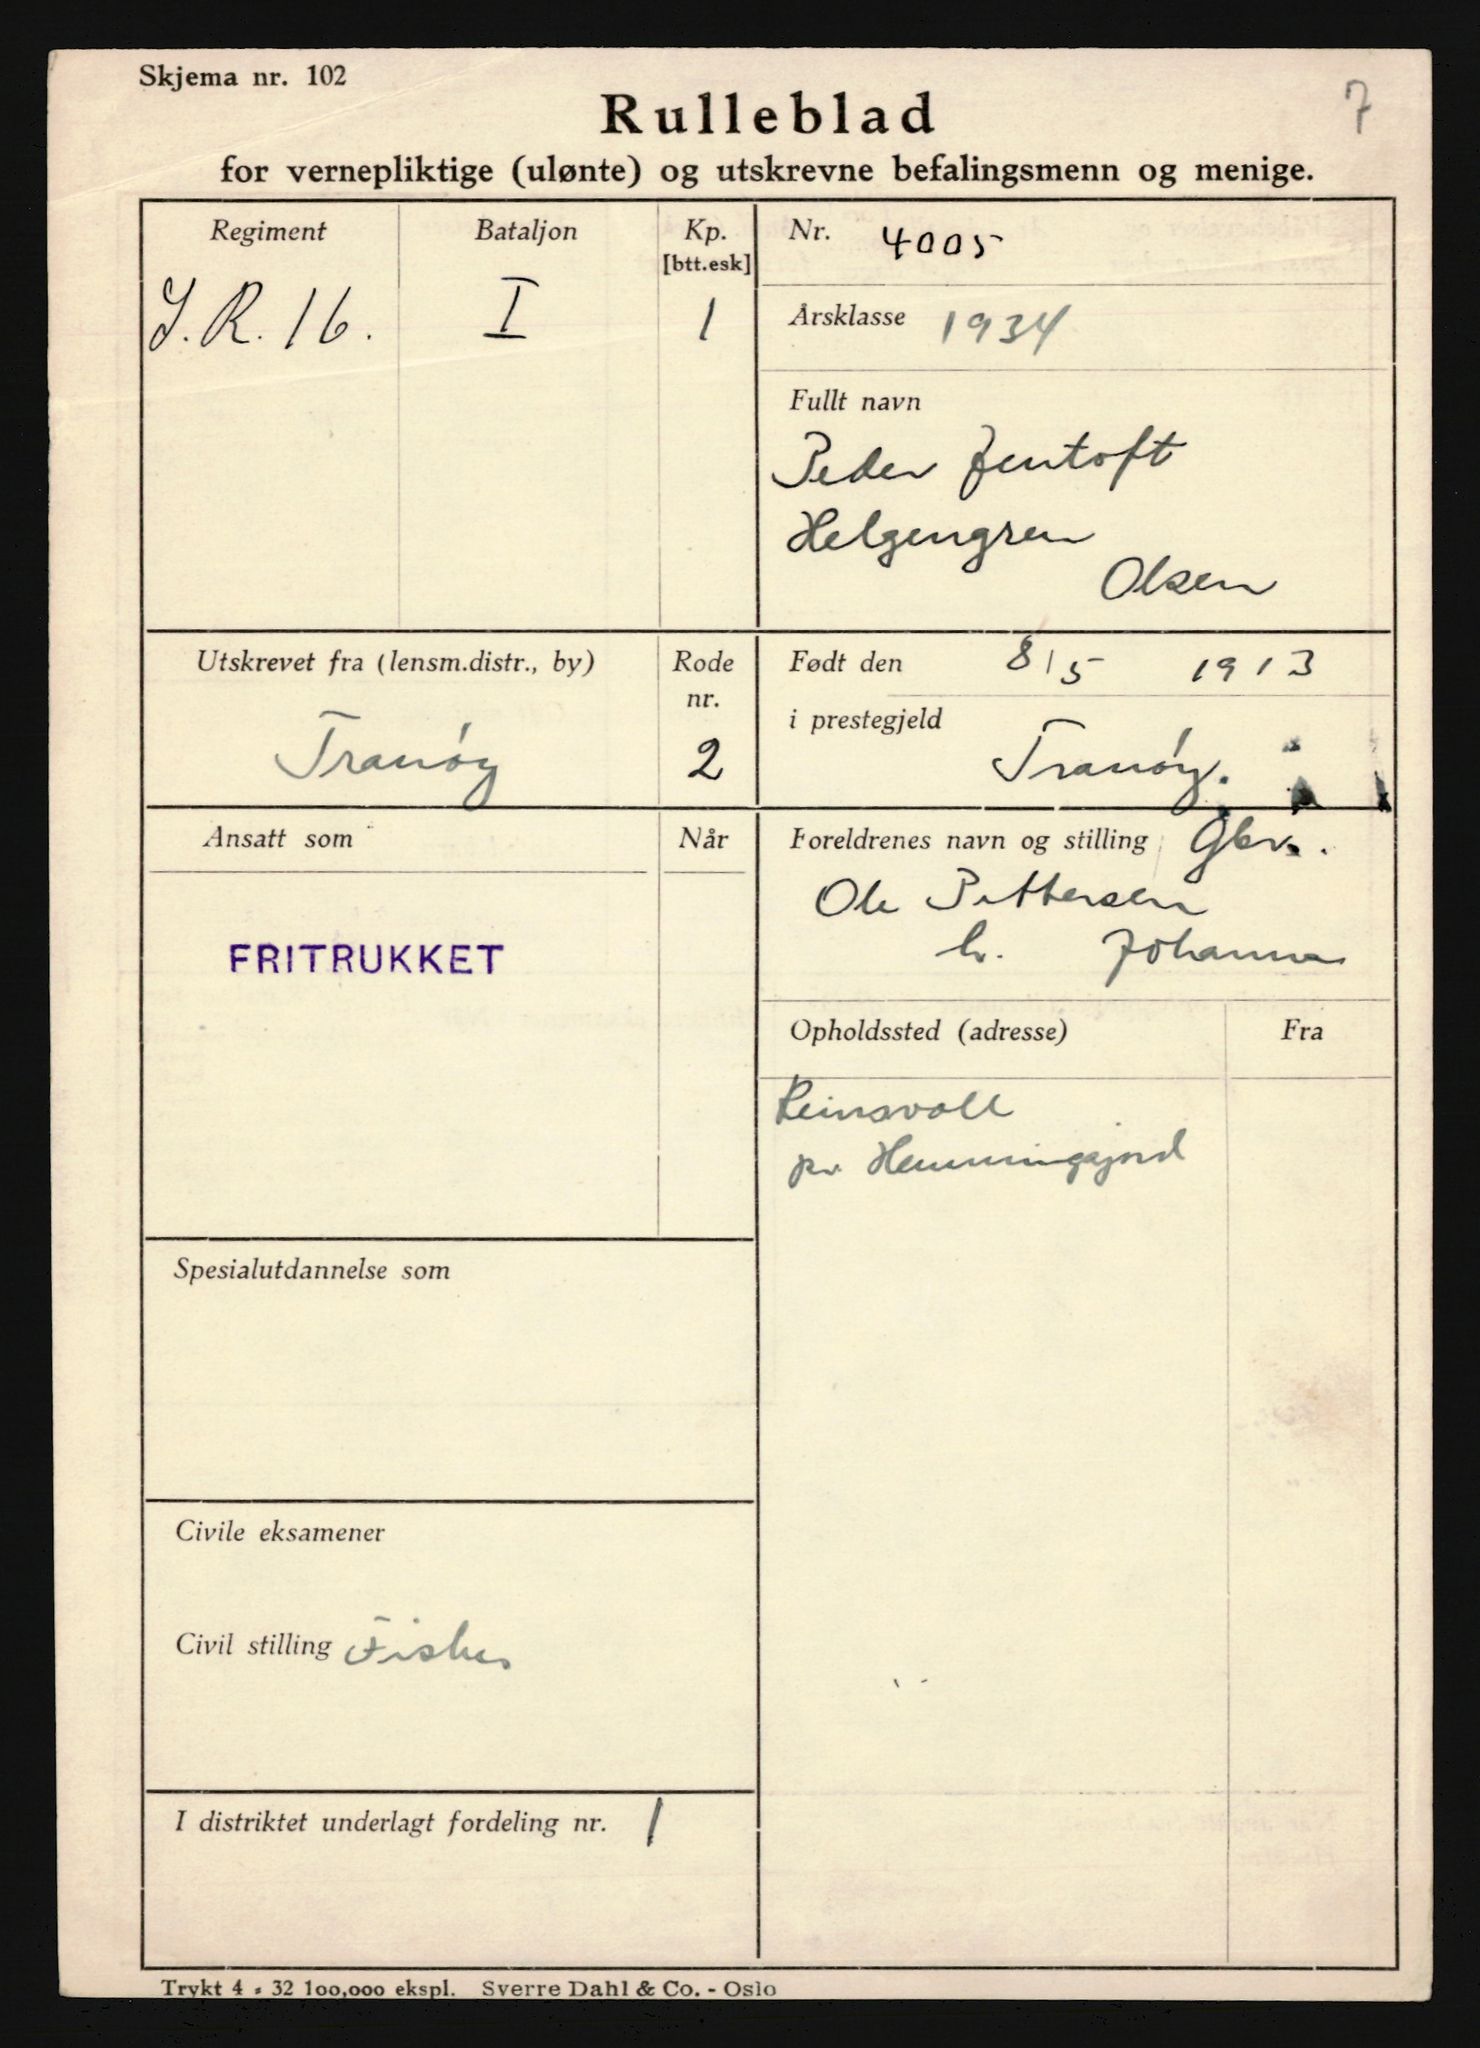 Skjema nr. 102
7
Rulleblad
for vernepliktige (ulønte) og utskrevne befalingsmenn og menige.
Regiment
Bataljon
Kp.
[btt.esk]
J.R. 16.
I
1
Nr. 4005
Årsklasse 1934
Fullt navn
Peder Jentoft
Helgengren
Olsen
Utskrevet fra (lensm.distr., by)
Rode
nr.
Tranöy
2
Født den 8/5 1913
i prestegjeld
Tranöy.
Ansatt som
Når
FRITRUKKET
Foreldrenes navn og stilling Gbr.
Ole Pettersen
h. Johanna
Opholdssted (adresse)
Fra
Reinsvoll
pr. Hemmingsjord
Spesialutdannelse som
Civile eksamener
Civil stilling Fisker
I distriktet underlagt fordeling nr. 1
Trykt 4 - 32 100,000 ekspl. Sverre Dahl & Co. - Oslo